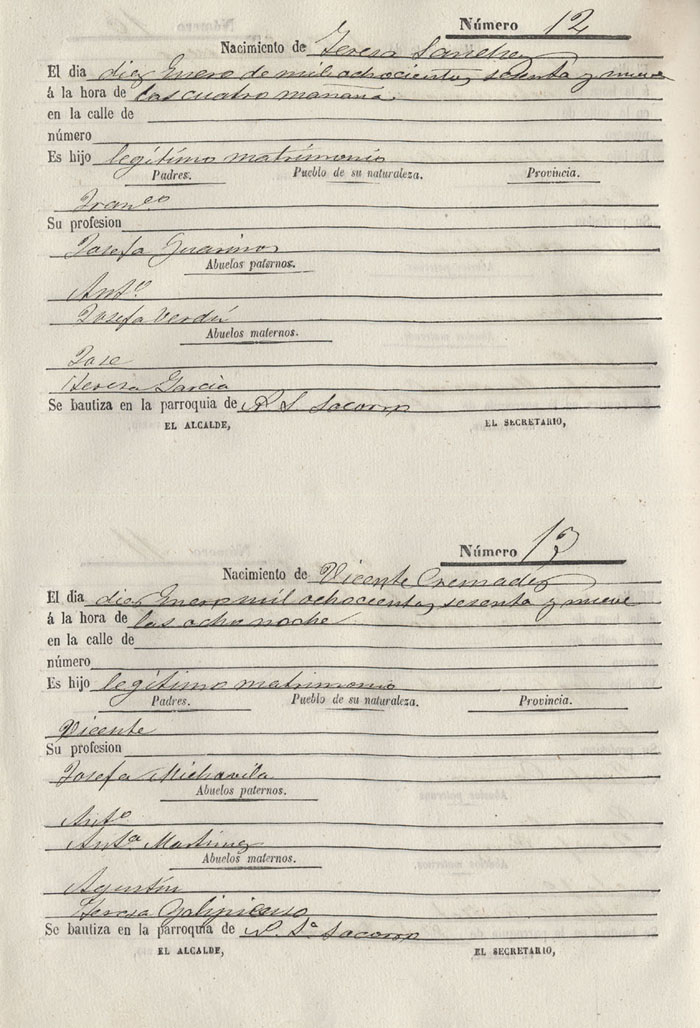 Número 12
Nacimiento de Teresa Sanchez
El dia diez Enero de mil ochocientos sesenta y nueve
á la hora de las cuatro mañana
en la calle de
número
Es hijo legítimo matrimonio
Padres. Pueblo de su naturaleza. Provincia.
Franco
Su profesion
Josefa Guarinos
Abuelos paternos.
Anto
Josefa Verdú
Abuelos maternos.
Jose
Teresa Garcia
Se bautiza en la parroquia de N. S. Socorro
EL ALCALDE, EL SECRETARIO,
Número 13
Nacimiento de Vicente Cremadez
El dia diez Enero mil ochocientos sesenta y nueve
á la hora de las ocho noche
en la calle de
número
Es hijo legítimo matrimonio
Padres. Pueblo de su naturaleza. Provincia.
Vicente
Su profesion
Josefa Michavila
Abuelos paternos.
Anto
Anta Martinez
Abuelos maternos.
Agustin
Teresa
Se bautiza en la parroquia de N. Sa Socorro
EL ALCALDE, EL SECRETARIO,